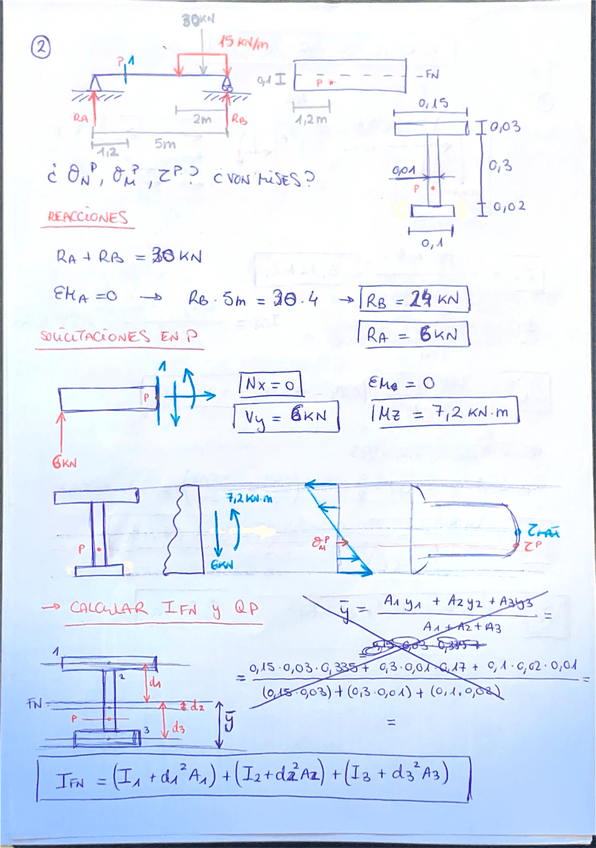 2
30KN
15 KN/m
P 1
RA
RB
2m
1,2
5m
0,1
P
- FN
1,2m
0,15
0,03
0,01
0,3
P
0,02
0,1
¿ σN^P, σM^P, τ^P? ¿VON MISES?
REACCIONES
RA + RB = 30 KN
ΣMA = 0 → RB · 5m = 30 · 4 → RB = 24 KN
RA = 6 KN
SOLICITACIONES EN P
1
P
6KN
Nx = 0
Vy = 6KN
Mz = 7,2 KN·m
P
7,2 KN·m
6KN
σM^P
τ^P
→ CALCULAR IFN y QP
ȳ = A1 y1 + A2 y2 + A3 y3 / A1 + A2 + A3 =
= 0,15 · 0,03 · 0,335 + 0,3 · 0,01 · 0,17 + 0,1 · 0,02 · 0,01 / (0,15 · 0,03) + (0,3 · 0,01) + (0,1 · 0,02) =
=
1
2
d1
FN
d2
P
d3
ȳ
3
IFN = (I1 + d1² A1) + (I2 + d2² A2) + (I3 + d3² A3)